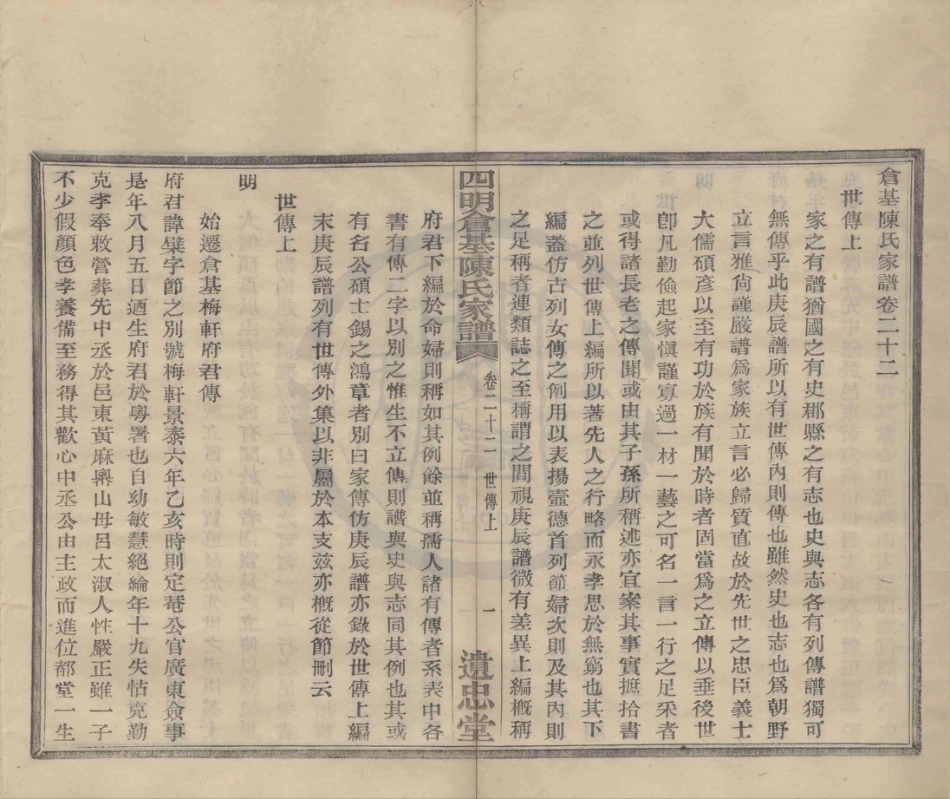 倉基陳氏家譜卷二十二
世傳上
家之有譜猶國之有史郡縣之有志也史與志各有列傳譜獨可
無傳乎此庚辰譜所以有世傳內則傳也雖然史也志也爲朝野
立言雅尙謹嚴譜爲家族立言必歸質直故於先世之忠臣義士
大儒碩彥以至有功於族有聞於時者固當爲之立傳以垂後世
卽凡勤儉起家愼謹寡過一材一藝之可名一言一行之足采者
或得諸長老之傳聞或由其子孫所稱述亦宜案其事實摭拾書
之並列世傳上編所以著先人之行略而永孝思於無窮也其下
編蓋仿古列女傳之例用以表揚壼德首列節婦次則及其內則
之足稱者連類誌之至稱謂之間視庚辰譜微有差異上編槪稱
四明倉基陳氏家譜 卷二十二 世傳上 一 遺忠堂
府君下編於命婦則稱如其例餘並稱孺人諸有傳者系表中各
書有傳二字以別之惟生不立傳則譜與史與志同其例也其或
有名公碩士錫之鴻章者別曰家傳仿庚辰譜亦錄於世傳上編
末庚辰譜列有世傳外集以非屬於本支兹亦槪從節刪云
世傳上
明
始遷倉基梅軒府君傳
府君諱璧字節之別號梅軒景泰六年乙亥時則定菴公官廣東僉事
是年八月五日迺生府君於粵署也自幼敏慧絕綸年十九失怙克勤
克孝奉敕營葬先中丞於邑東黃麻輿山母呂太淑人性嚴正雖一子
不少假顏色孝養備至務得其歡心中丞公由主政而進位都堂一生